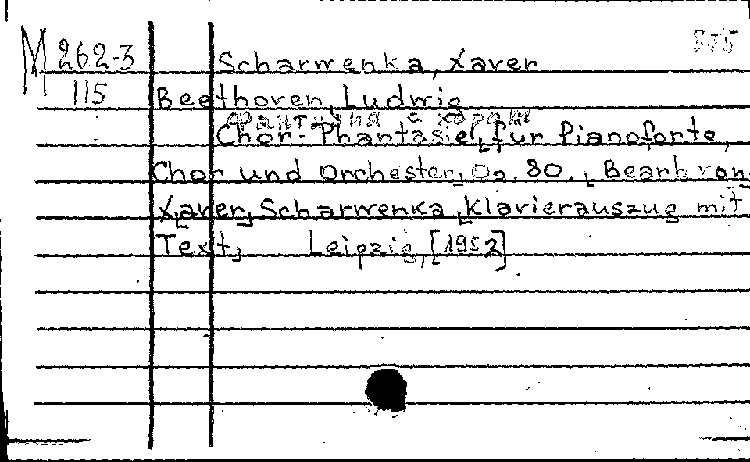 M 262-3 Scharwenka, Xaver 575
115 Beethoven, Ludwig
Фантазия с хорам
Chor-Phantasie, für Pianoforte,
Chor und Orchester, Op. 80., Bearb von
Xaver, Scharwenka, Klavierauszug mit
Text, Leipzig, [1952]